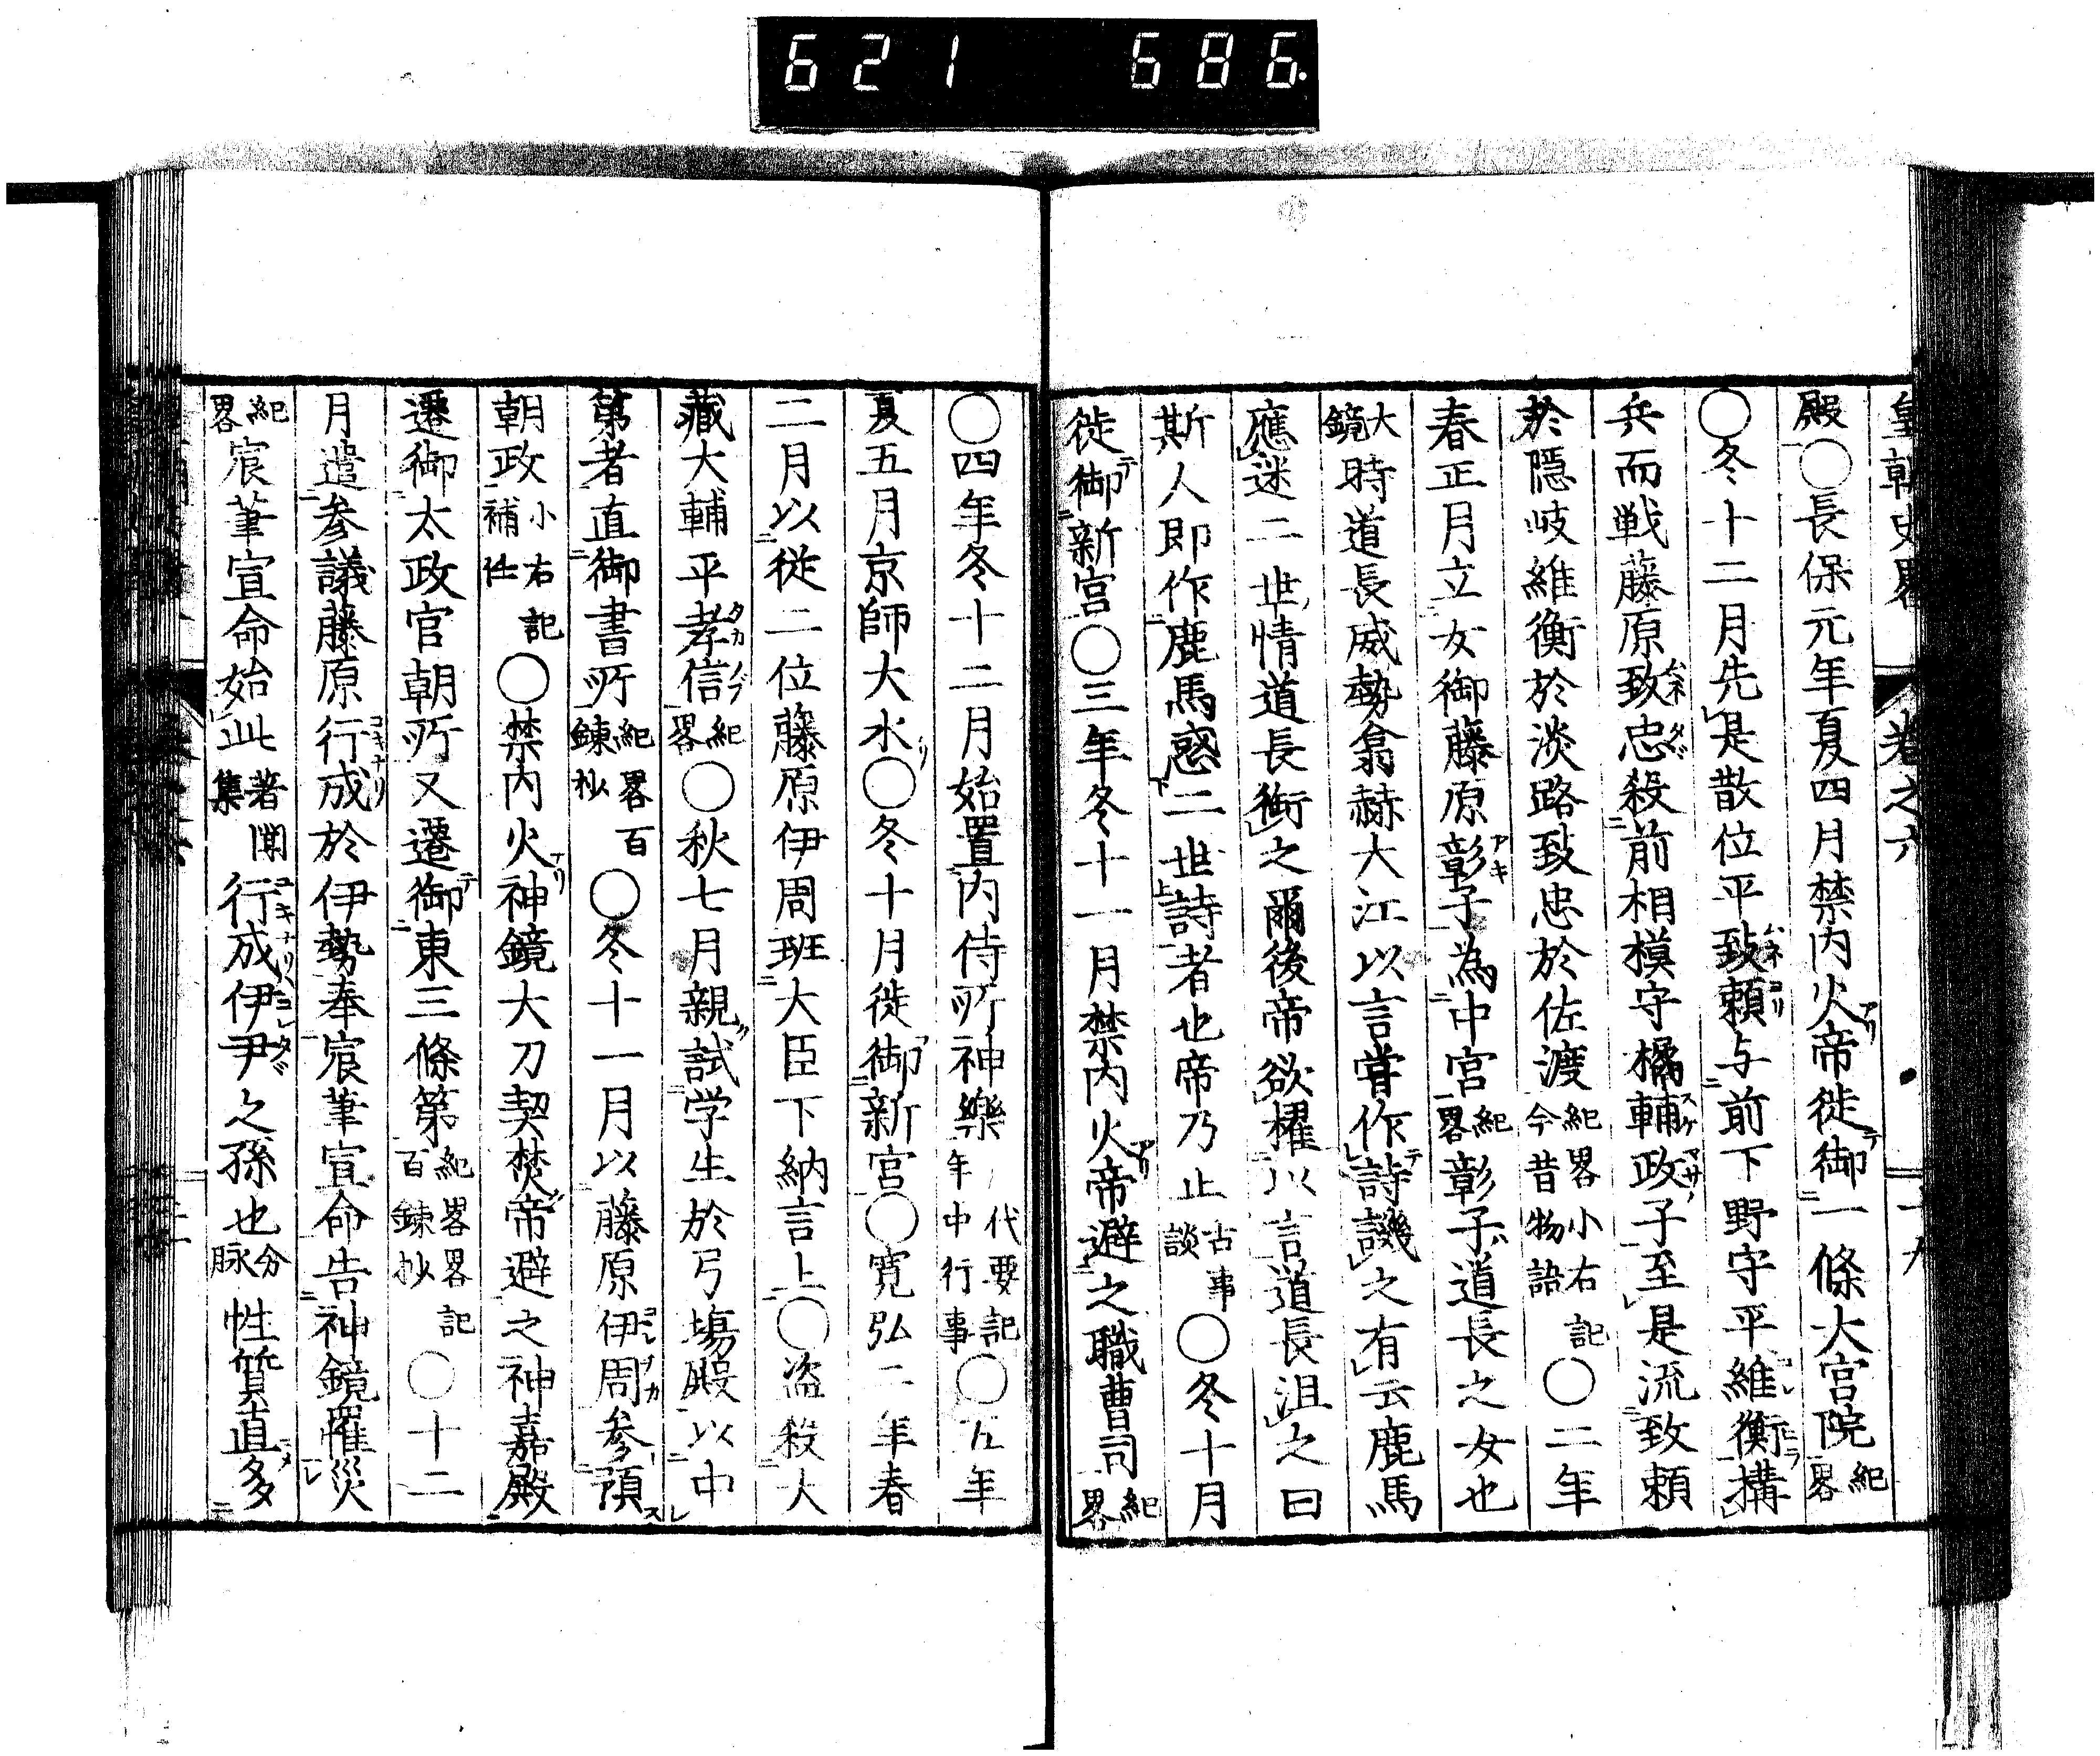 621 686.
皇朝史畧 卷之六 十九
殿〇長保元年夏四月禁内火帝徙御一條大宮院紀畧
〇冬十二月先是散位平致頼与前下野守平維衡構
兵而戦藤原致忠殺前相模守橘輔政子至是流致頼
於隱岐維衡於淡路致忠於佐渡紀畧小右記今昔物語〇二年
春正月立女御藤原彰子為中宮紀畧彰子道長之女也
大鏡時道長威勢翕赫大江以言嘗作詩譏之有云鹿馬
應迷二世情道長銜之爾後帝欲櫂以言道長沮之曰
斯人即作鹿馬惑二世詩者也帝乃止古事談〇冬十月
徙御新宮〇三年冬十一月禁内火帝避之職曹司紀畧
〇四年冬十二月始置内侍所神樂代要記年中行事〇五年
夏五月京師大水〇冬十月徙御新宮〇寛弘二年春
二月以從二位藤原伊周班大臣下納言上〇盗殺大
藏大輔平孝信紀畧〇秋七月親試学生於弓場殿以中
第者直御書所紀畧百錬抄〇冬十一月以藤原伊周参預
朝政小右記補任〇禁内火神鏡大刀契焚帝避之神嘉殿
遷御太政官朝所又遷御東三條第紀畧畧記百錬抄〇十二
月遣参議藤原行成於伊勢奉宸筆宣命告神鏡罹災
紀畧宸筆宣命始此著聞集行成伊尹之孫也分脉性質直多